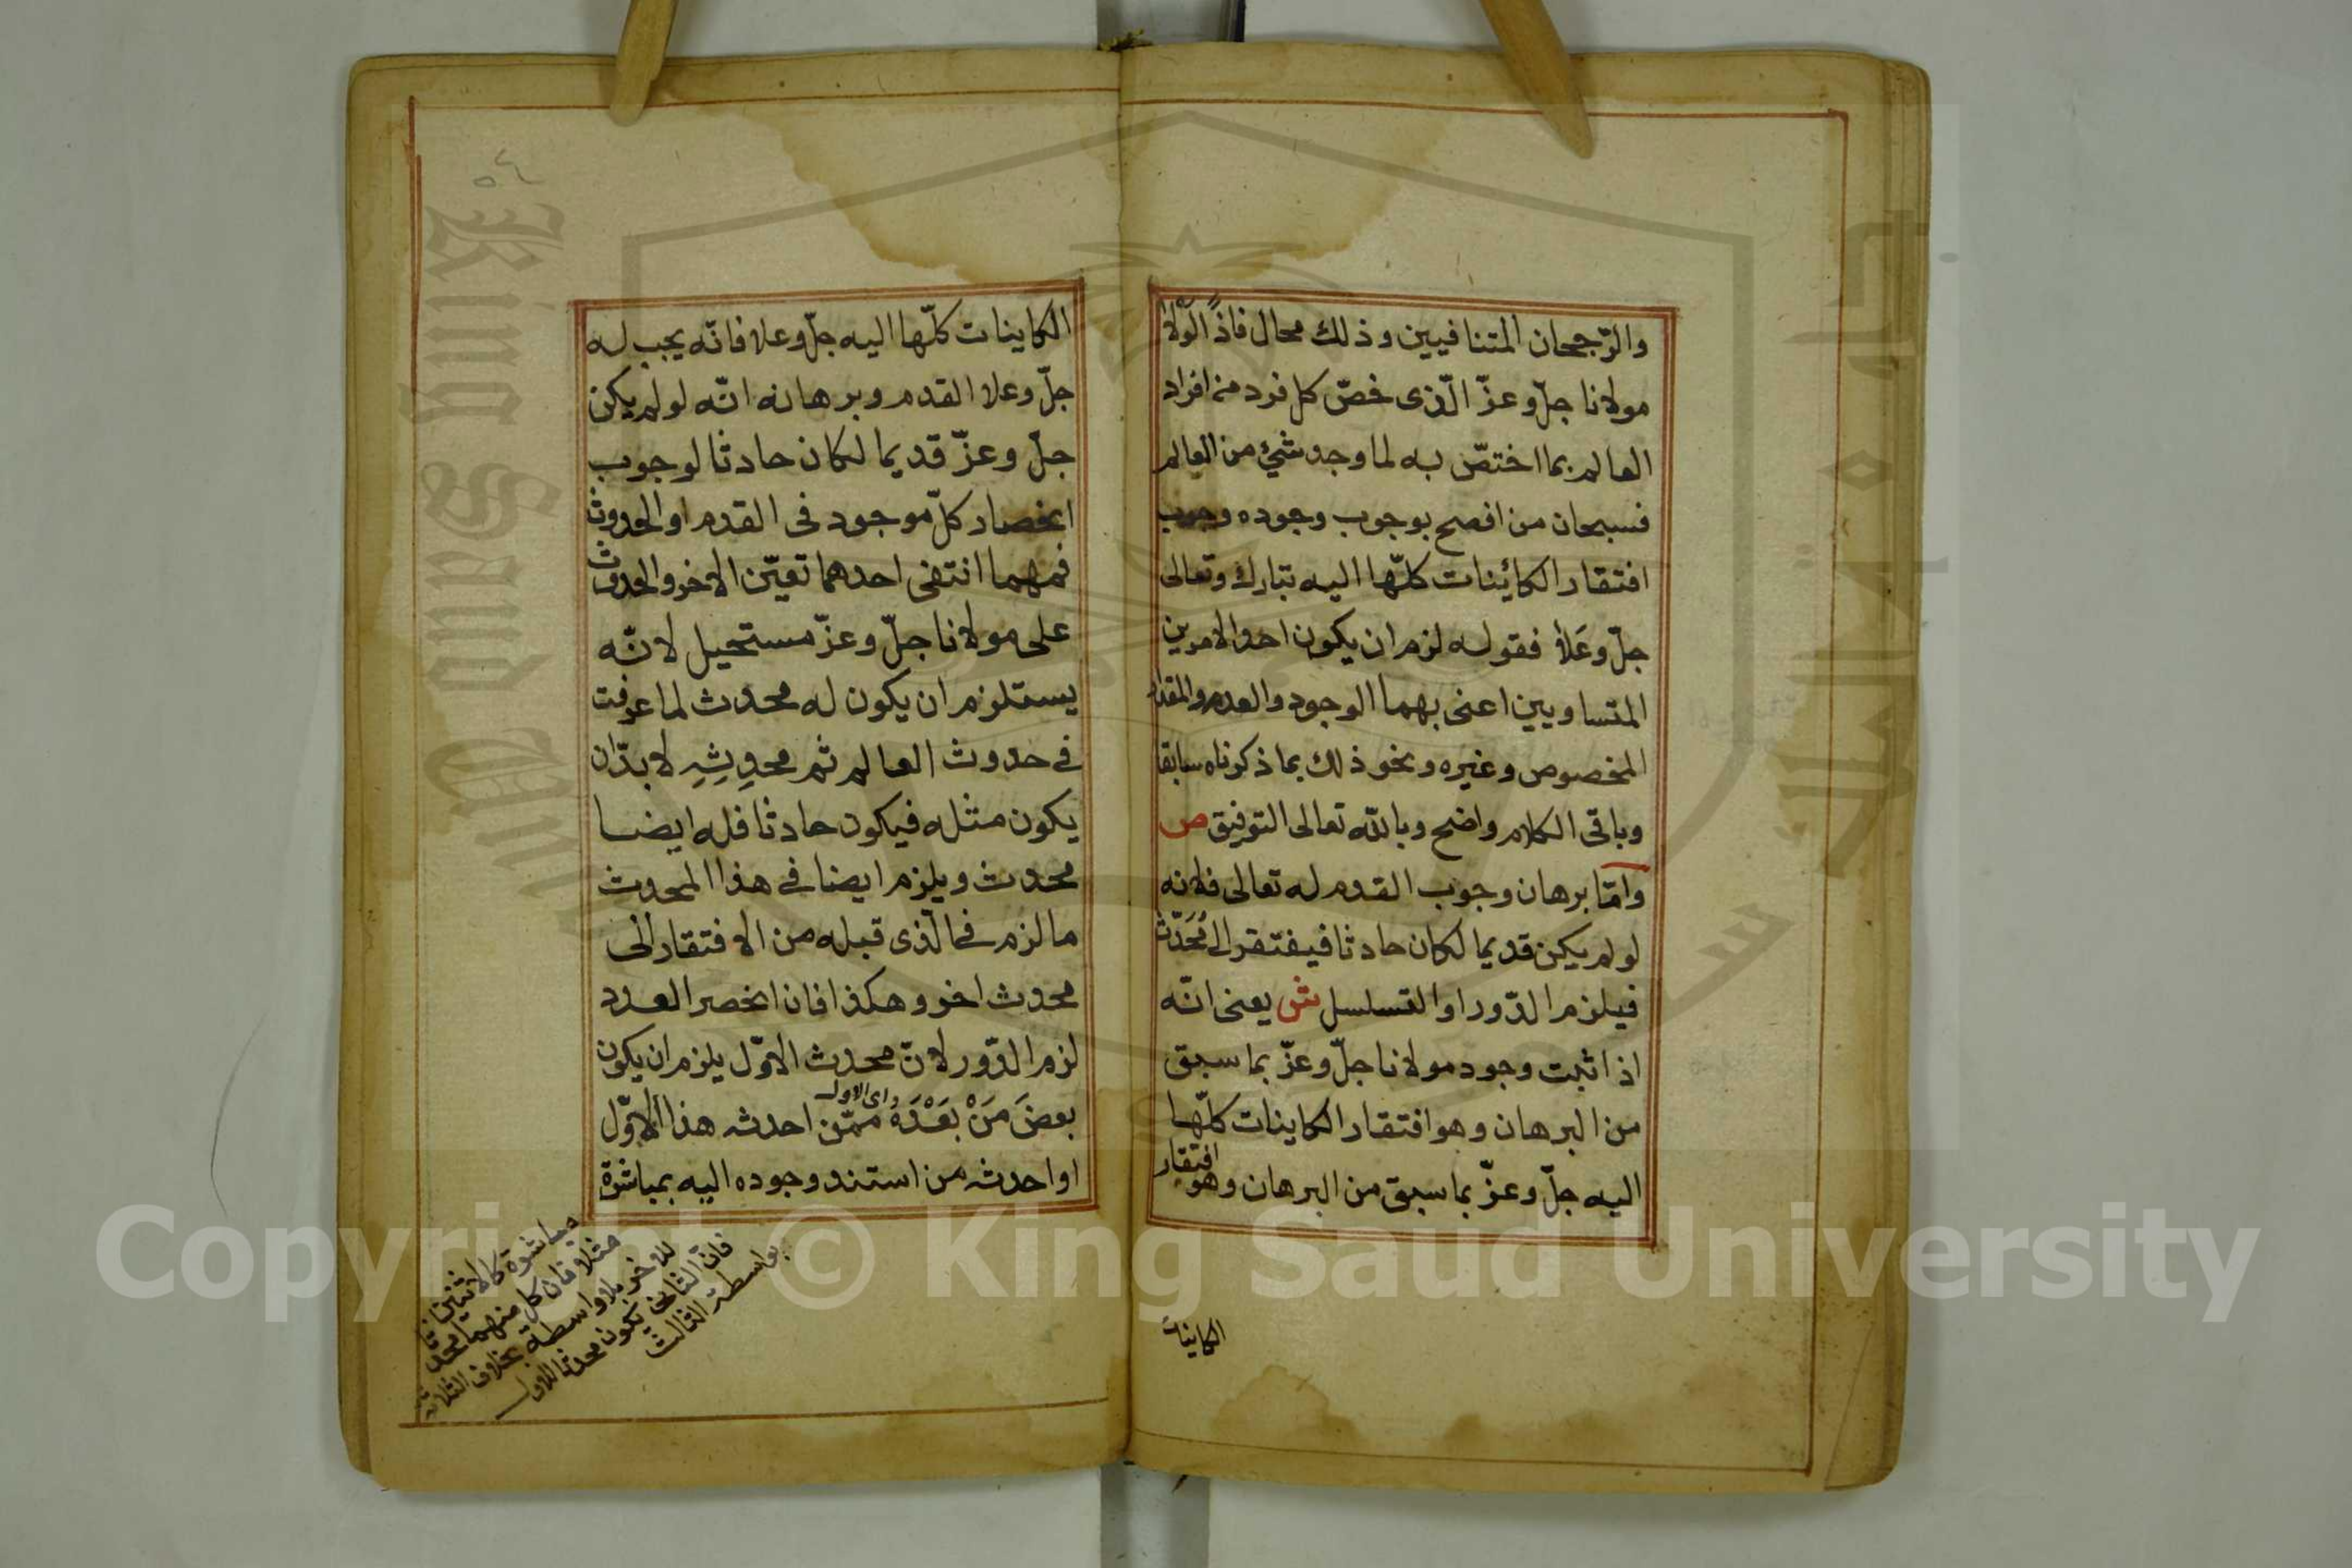 والرّجحان المتنافيين وذلك محال فاذًا لَوْلا
مولانا جلّ وعزّ الّذى خصّ كل فرد من افراد
العالم بما اختصّ به لما وجد شئ من العالم
فسبحان من افصح بوجوب وجوده وجوب
افتقار الكائينات كلّها اليه تبارك وتعالى
جلّ وعَلاَ فقوله لزم ان يكون احد الامرين
المتساويين اعنى بهما الوجود والعدم والمقدار
المخصوص وغيره ونحو ذلك بما ذكرناه سابقا
وباقى الكلام واضح وبالله تعالى التوفيق ص
وامّا برهان وجوب القدم له تعالى فلانه
لو لم يكن قديما لكان حادثا فيفتقر الى مُحَدّث
فيلزم الدّور او التسلسل ش يعنى انّه
اذا ثبت وجود مولانا جلّ وعزّ بما سبق
من البرهان وهو افتقار الكاينات كلّها
اليه جلّ وعزّ بما سبق من البرهان وهو افتقار
الكاينات
٥٤
الكاينات كلّها اليه جلّ وعلا فانّه يجب له
جلّ وعلا القدم وبرهانه انّه لو لم يكن
جلّ وعزّ قديما لكان حادثا لوجوب
انحصار كلّ موجود فى القدم او الحدوث
فمهما انتفى احدهما تعيّن الاخر والحدوث
على مولانا جلّ وعزّ مستحيل لانّه
يستلزم ان يكون له محدث لما عرفت
فى حدوث العالم ثم محدِثِهِ لا بدّ ان
يكون مثله فيكون حادثا فله ايضا
محدث ويلزم ايضا فى هذا المحدث
ما لزم فى الّذى قبله من الافتقار الى
محدث اخر وهكذا فان انحصر العدد
لزم الدّور لانّ محدث الاوّل يلزم ان يكون
اى الاول
بعضَ مَنْ بَعْدَهُ ممّن احدثه هذا الاوّل
او احدثه من استند وجوده اليه بمباشرة
مباشرة كالاثنين
مثلا فان كل منهما محدثا
للاخر بلا واسطة بخلاف الثلاثة
فانّ الثانى يكون محدثا للاول
بواسطة الثالث
Copyright © King Saud University